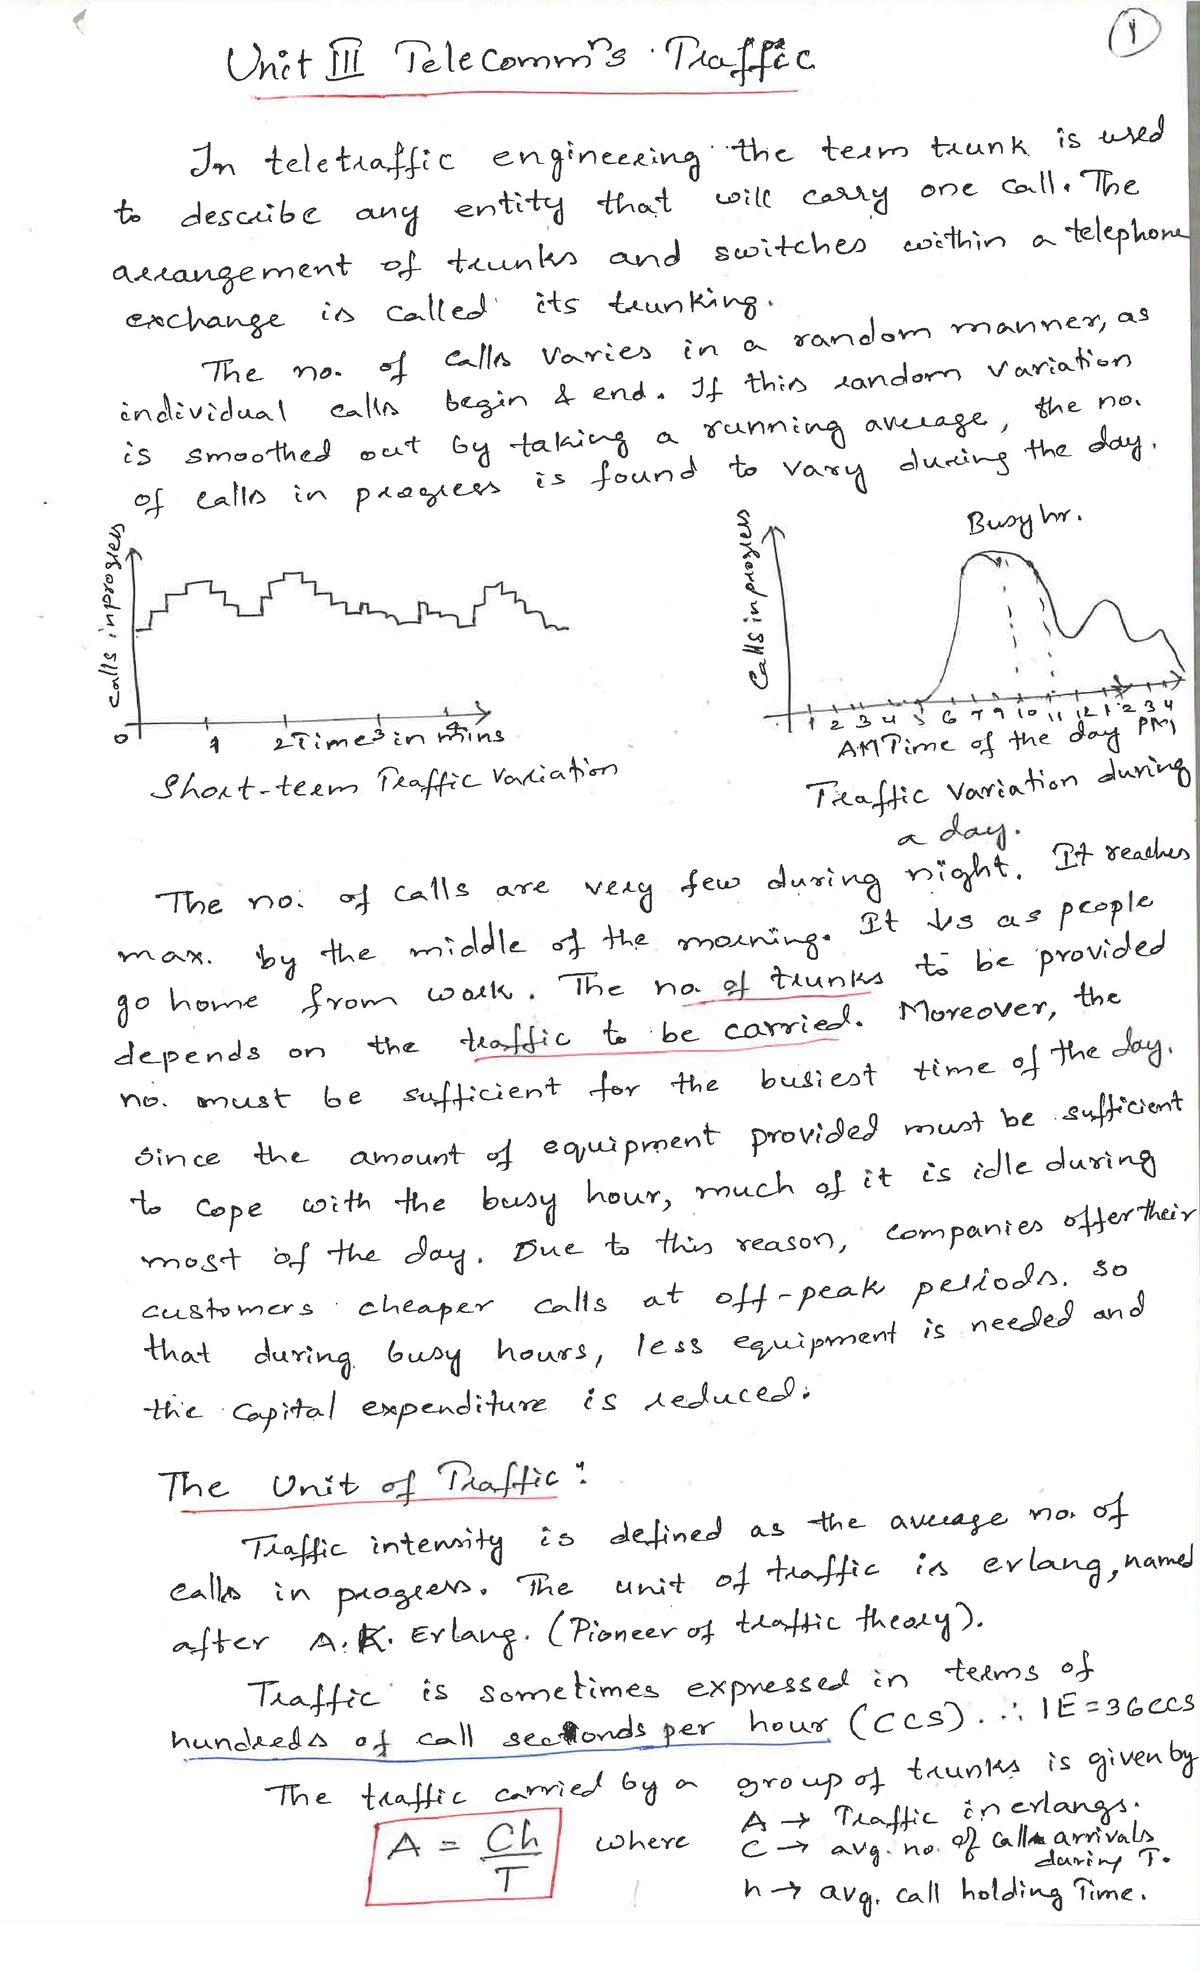 1
Unit III Telecommⁿs Traffic
In teletraffic engineering the term trunk is used
to describe any entity that will carry one call. The
arrangement of trunks and switches within a telephone
exchange is called its trunking.
The no. of calls varies in a random manner, as
individual calls begin & end. If this random variation
is smoothed out by taking a running average, the no.
of calls in progress is found to vary during the day.
Calls in progress
0 1 2 3 4
Time in mins
Short-term Traffic Variation
Calls in progress
Busy hr.
1 2 3 4 5 6 7 9 10 11 12 1 2 3 4
AM Time of the day PM
Traffic Variation during
a day.
The no. of calls are very few during night. It reaches
max. by the middle of the morning. It ↓s as people
go home from work. The no. of trunks to be provided
depends on the traffic to be carried. Moreover, the
no. must be sufficient for the busiest time of the day.
Since the amount of equipment provided must be sufficient
to cope with the busy hour, much of it is idle during
most of the day. Due to this reason, companies offer their
customers cheaper calls at off-peak periods. So
that during busy hours, less equipment is needed and
the capital expenditure is reduced.
The Unit of Traffic :
Traffic intensity is defined as the average no. of
calls in progress. The unit of traffic is erlang, named
after A.K. Erlang. (Pioneer of traffic theory).
Traffic is sometimes expressed in terms of
hundreds of call seconds per hour (CCS). ∴ 1E=36CCS
The traffic carried by a group of trunks is given by
A = Ch/T where A → Traffic in erlangs.
C → avg. no. of calls arrivals
during T.
h → avg. call holding Time.